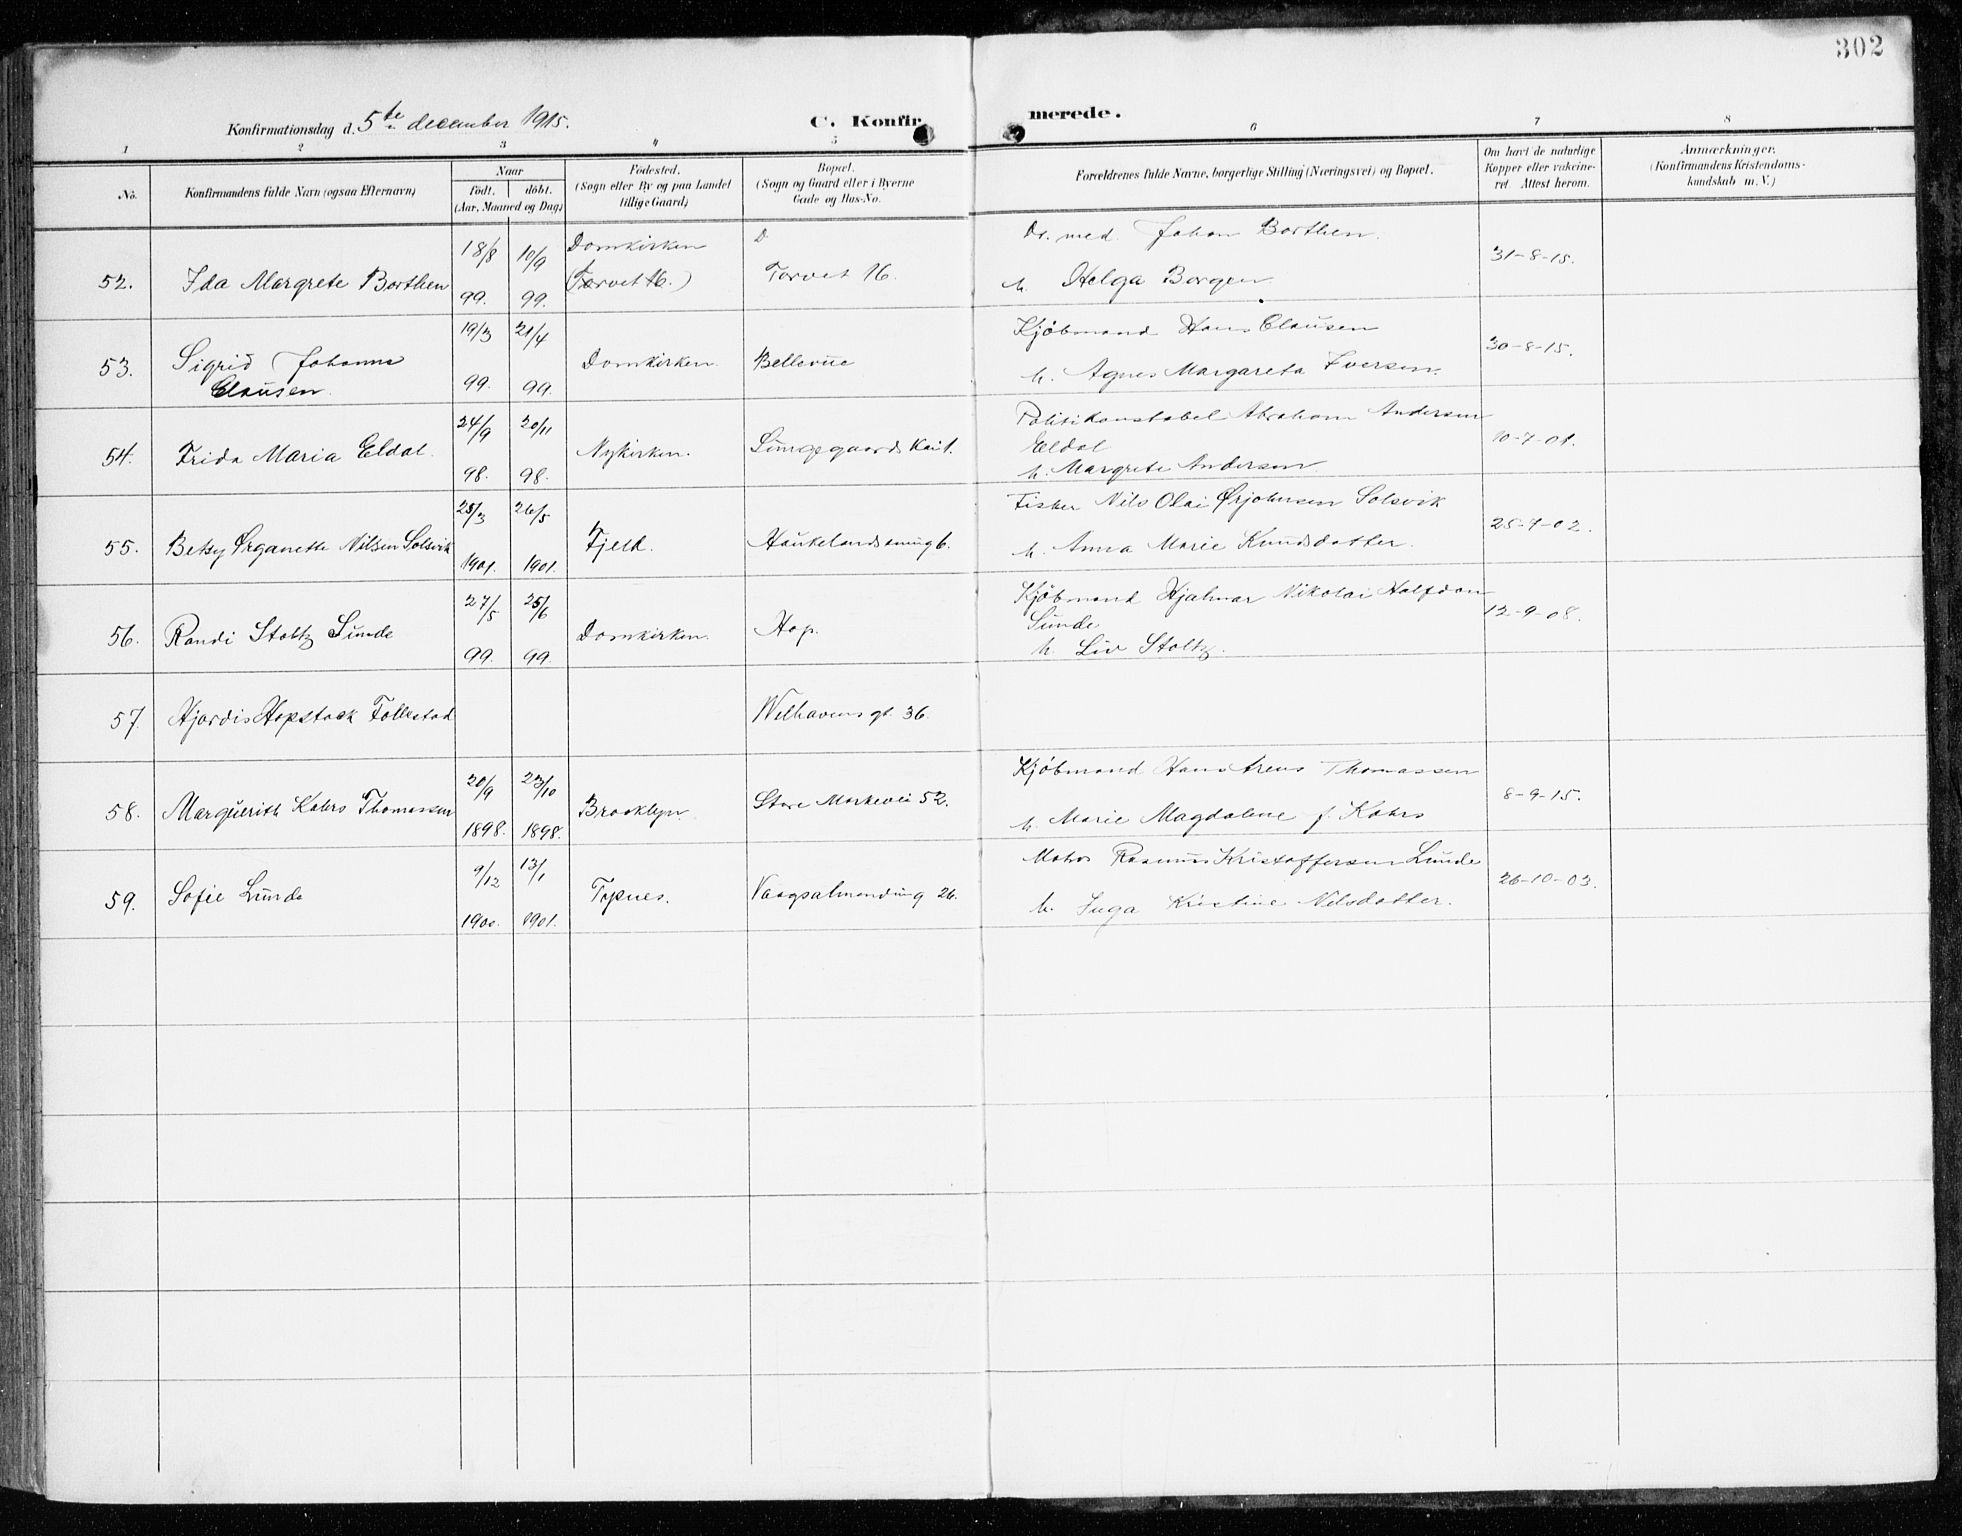 302
Konfirmationsdag d. 5te december 1915.
C. Konfir merede.
1 2 3 4 5 6 7 8
No. Konfirmandens fulde Navn (ogsaa Efternavn)
Naar
født. døbt.
(Aar, Maaned og Dag)
Fødested.
(Sogn eller By og paa Landet
tillige Gaard)
Bopæl.
(Sogn og Gaard eller i Byerne
Gade og Hus-No.
Forældrenes fulde Navne, borgerlige Stilling (Næringsvei) og Bopæl.
Om havt de naturlige
Kopper eller vakcine-
ret. Attest herom.
Anmærkninger.
(Konfirmandens Kristendoms-
kundskab m. V.)
52. Ida Margrete Borthen 18/8 99. 10/9 99. Domkirken (Torvet 16.) D Torvet 16. Dr. med. Johan Borthen.
h. Helga Borgen 31-8-15.
53. Sigrid Johanne
Clausen. 19/3 99. 21/4 99. Domkirken. Bellevue Kjøbmand Hans Clausen
h. Agnes Margareta Iversen. 30-8-15.
54. Frida Maria Eldal. 24/9 98. 20/11 98. Nykirken. Lungegaardskai 1. Politikonstabel Abraham Andersen
Eldal
h. Margrete Andersen. 10-7-01.
55. Betsy Ørganette Nilsen Solsvik 25/3 1901. 26/5 1901. Fjeld. Haukelandssving 6. Fisker Nils Olai Ørjohnsen Solsvik
h. Anna Marie Knudsdatter. 25-7-02.
56. Randi Stoltz Sunde 27/5 99. 25/6 99. Domkirken. Hop. Kjøbmand Hjalmar Nikolai Halfdan
Sunde
h. Liv Stoltz. 12-9-08.
57. Hjordis Hopstock Follestad Welhavens gt. 36.
58. Marguerith Kahrs Thomassen 20/9 1898. 23/10 1898. Brooklyn. Store Markevei 52. Kjøbmand Hans Arens Thomassen
h. Marie Magdalene f. Kahrs 8-9-15.
59. Sofie Lunde 9/12 1900. 13/1 1901. Topnes. Vaagsalmending 26. Matros Rasmus Kristoffersen Lunde
h. Inga Kristine Nilsdatter. 26-10-03.